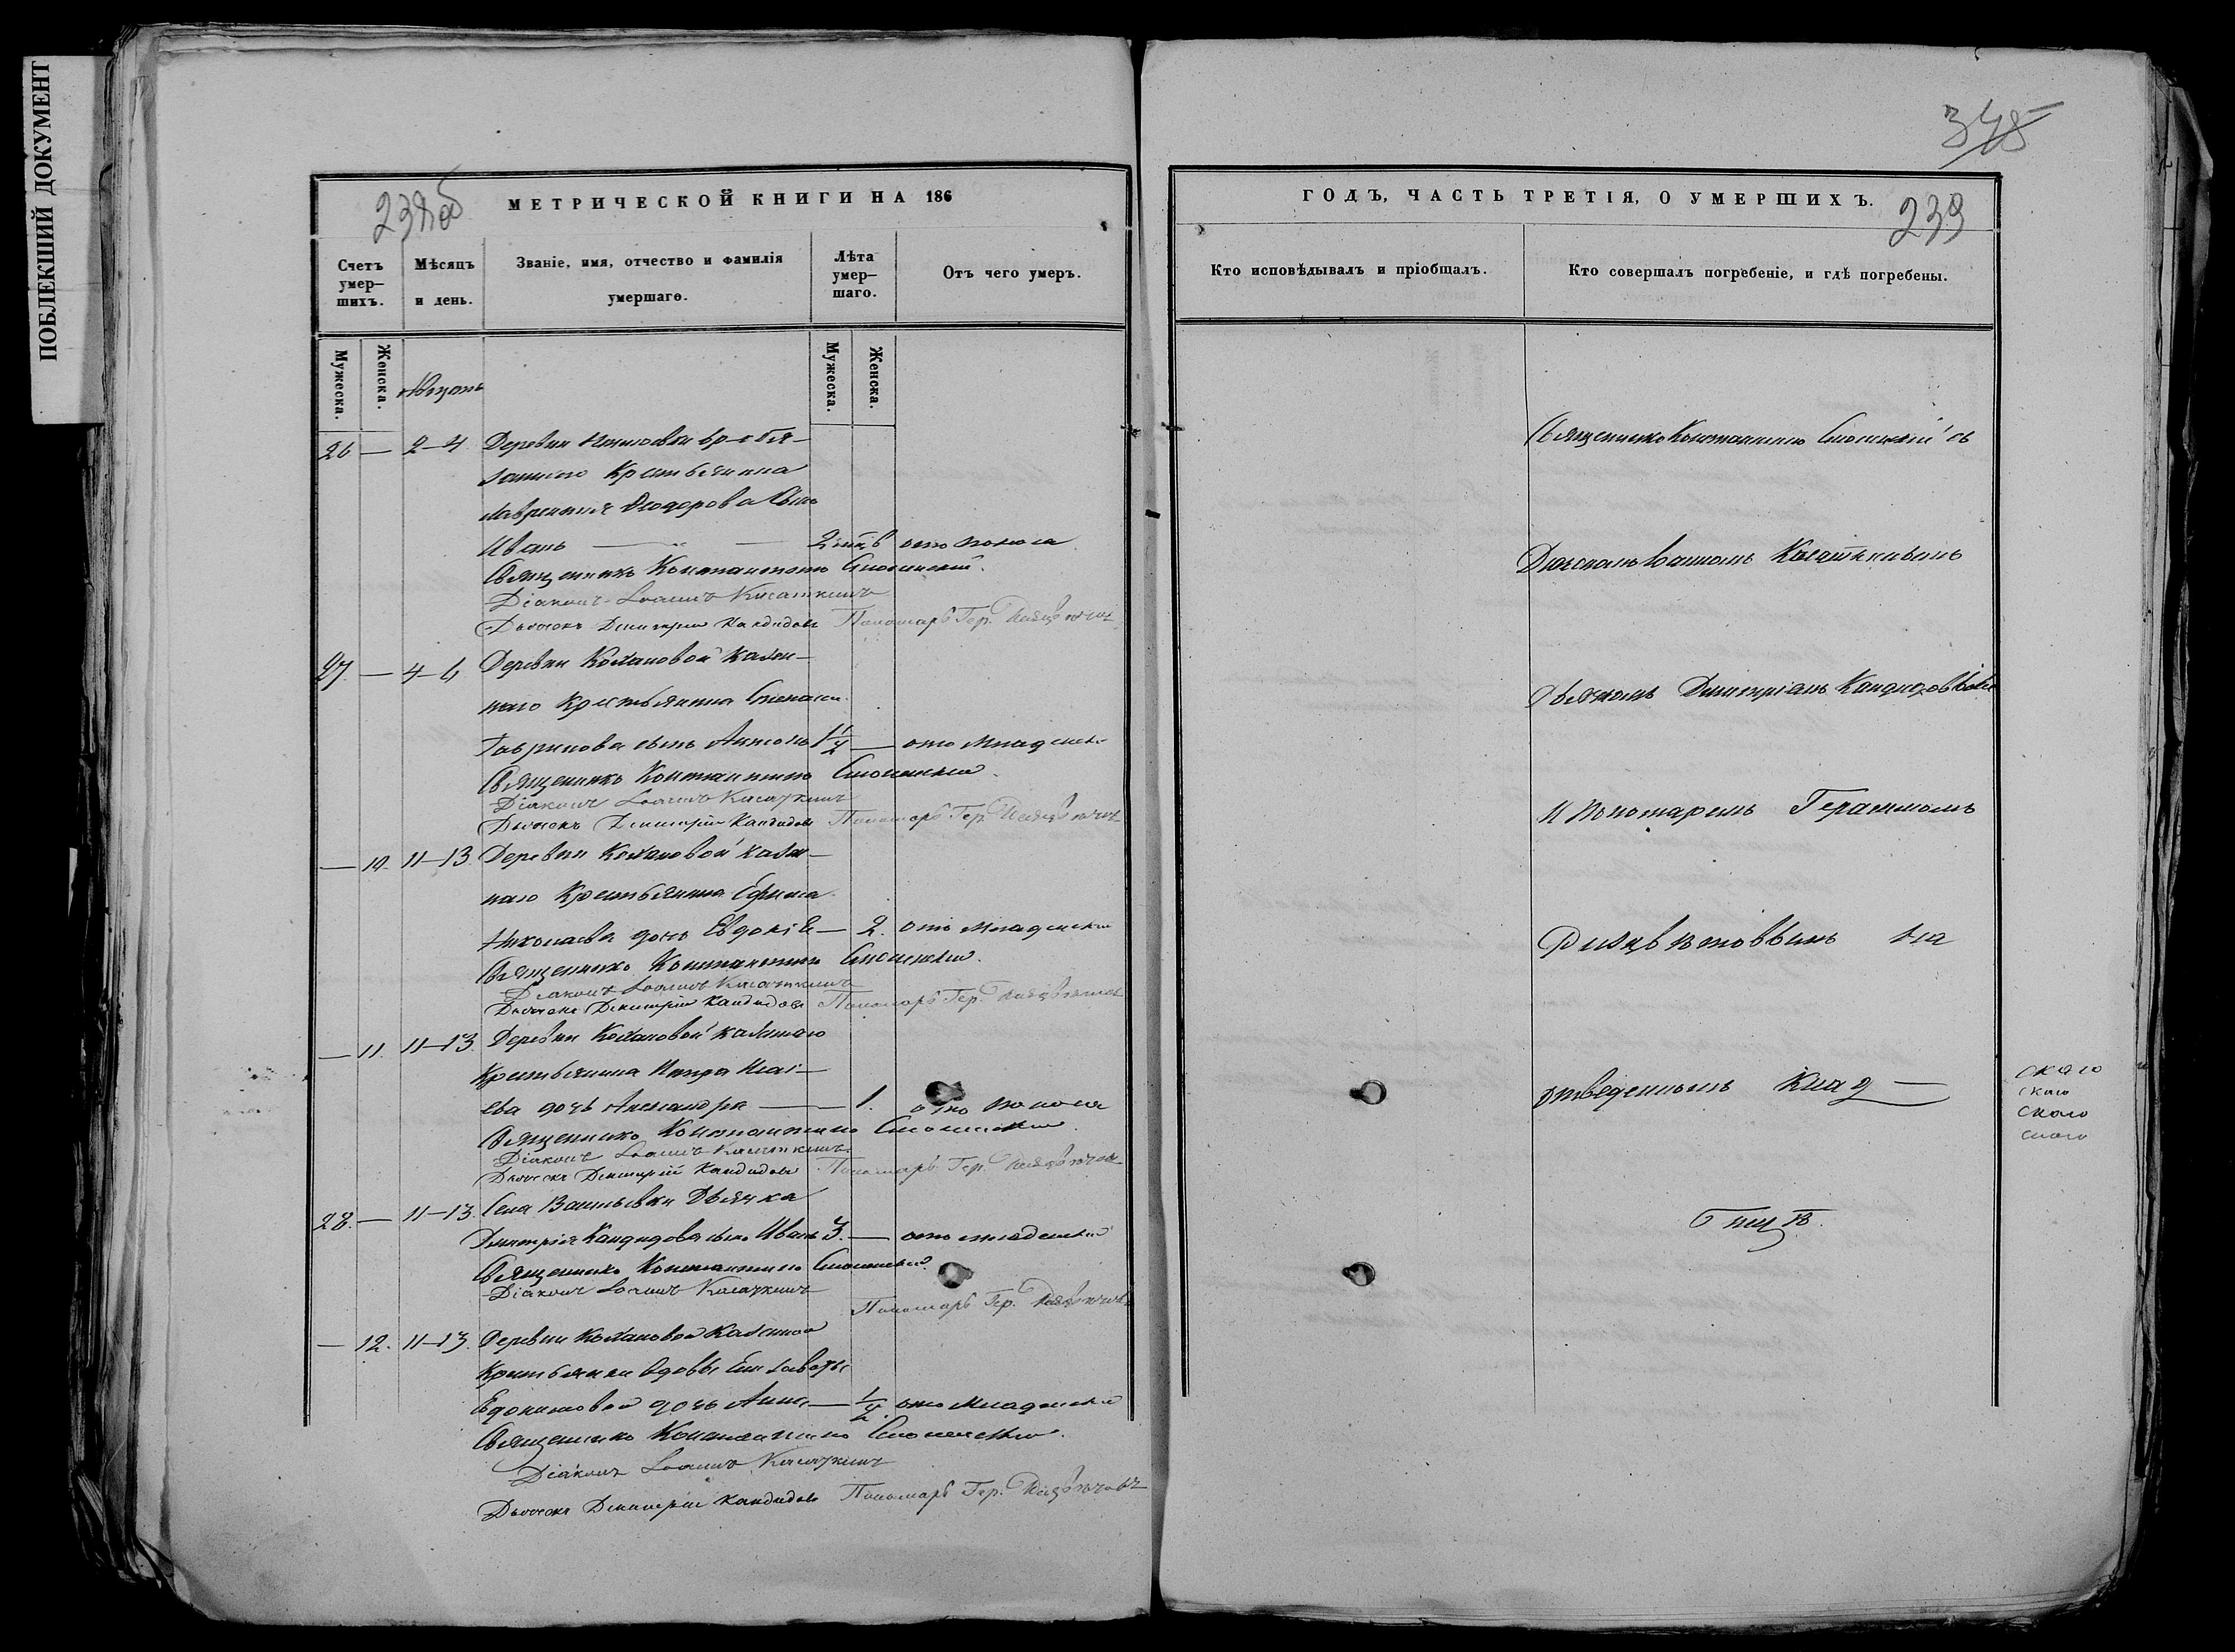 ПОБЛЕКШИЙ ДОКУМЕНТ
238об
МЕТРИЧЕСКОЙ КНИГИ НА 186
Счетъ умер–шихъ.
Мѣсяцъ и день.
Званіе, имя, отчество и фамилія умершаго.
Лѣта умер–шаго.
Отъ чего умеръ.
Мужеска.
Женска.
Мужеска.
Женска.
26 — 2–4 Деревни вр–обя–
заннаго Крестьянина
Лаврентія Ѳеодорова сынъ
Иванъ — — отъ поноса
Священникъ Константинъ Смоленскій.
Діаконъ Іоаннъ Касаткинъ
Дьячекъ Димитрій Кандидовъ Пономарь Гер.
27 — 4–6 Деревни Кохановой казен–
наго крестьянина Степана
Гаврилова сынъ Антонъ 1½ — отъ младенск.
Священникъ Константинъ Смоленскій.
Діаконъ Іоаннъ Касаткинъ
Дьячекъ Димитрій Кандидовъ Пономарь Гер.
— 10. 11–13. Деревни Кохановой казен–
наго Крестьянина Ефима
Николаева дочь Евдокія — 2. отъ младенски
Священникъ Константинъ Смоленскій.
Діаконъ Іоаннъ Касаткинъ
Дьячекъ Димитрій Кандидовъ Пономарь Гер.
— 11. 11–13. Деревни Кохановой казеннаго
Крестьянина Петра Исаі–
ева дочь Александра — 1. отъ поноса
Священникъ Константинъ Смоленскій.
Діаконъ Іоаннъ Касаткинъ
Дьячекъ Димитрій Кандидовъ Пономарь Гер.
28. — 11–13. Села Васильевки Дьячка
Димитрія Кандидова сынъ Иванъ 3. — отъ младенский
Священникъ Константинъ Смоленскій.
Діаконъ Іоаннъ Касаткинъ
Пономарь Гер.
— 12. 11–13. Деревни Кохановой Казенной
Крестьянки вдовы Елизаветы
дочь Анна — ½. отъ младенски
Священникъ Константинъ Смоленскій.
Діаконъ Іоаннъ Касаткинъ
Дьячекъ Димитрій Кандидовъ Пономарь Гер.
345
ГОДЪ, ЧАСТЬ ТРЕТІЯ, О УМЕРШИХЪ.
239
Кто исповѣдывалъ и пріобщалъ.
Кто совершалъ погребеніе, и гдѣ погребены.
Священникъ Константинъ Смоленскій съ
Діакономъ Іоанномъ Касаткинымъ
Дьячкомъ Димитріемъ Кандидовымъ
и Пономаремъ Герасимомъ
на
отведенномъ Клад–
бищѣ.
скаго
скаго
скаго
скаго